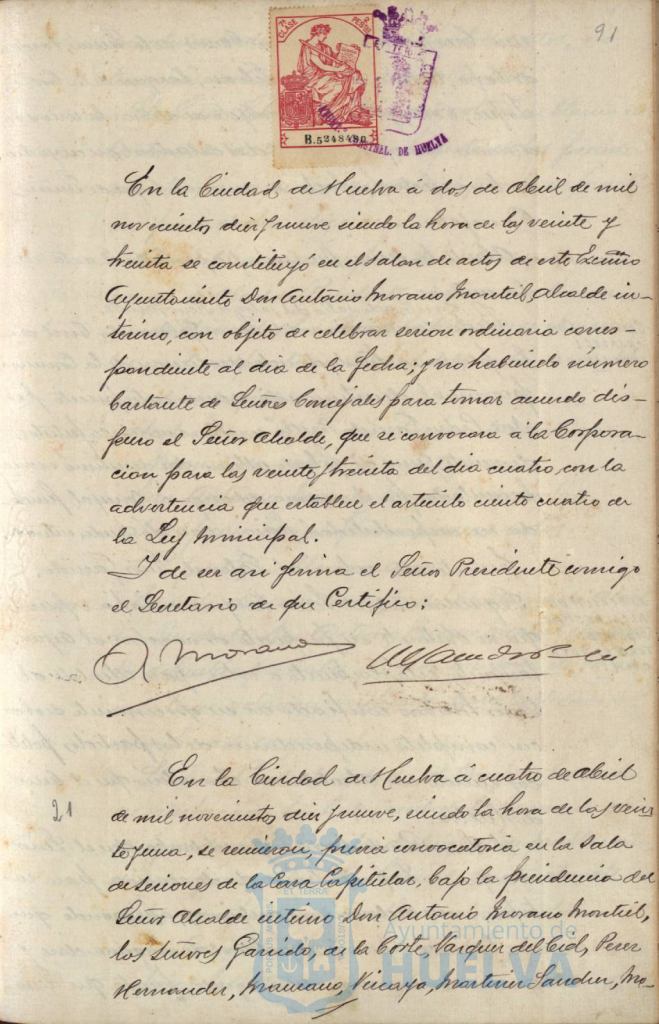 91
CLASE
PESETAS
B.5248480
ET TERRÆ CUSTODIA
MUNICIPAL. DE HUELVA
En la Ciudad de Huelva á dos de Abril de mil
novecientos diez y nueve siendo la hora de las veinte y
treinta se constituyó en el salon de actos de este Excmo
Ayuntamiento Don Antonio Morano Montiel, Alcalde in-
terino, con objeto de celebrar sesion ordinaria corres-
pondiente al dia de la fecha; y no habiendo número
bastante de Señores Concejales para tomar acuerdo dis-
puso el Señor Alcalde, que se convocara á la Corpora-
cion para las veinte y treinta del dia cuatro, con la
advertencia que establece el articulo ciento cuatro de
la Ley Municipal.
Y de ser asi firma el Señor Presidente conmigo
el Secretario de que Certifico:
A Morano
En la Ciudad de Huelva á cuatro de Abril
21
de mil novecientos diez y nueve, siendo la hora de las vein-
te y una, se reunieron, previa convocatoria en la Sala
de Sesiones de la Casa Capitular, bajo la presidencia del
Señor Alcalde interino Don Antonio Morano Montiel,
los señores Garrido, de la Corte, Vazquez del Cid, Perez
Hernandez, Mamano, Vizcaya, Martinez Sanchez, Mo-
Ayuntamiento de
HUELVA